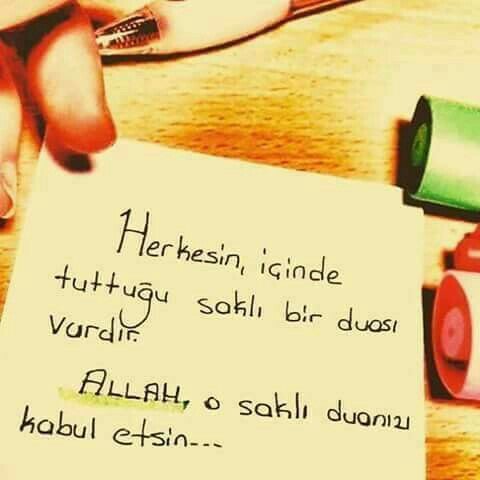 Herkesin, içinde
tuttuğu saklı bir duası
vardır.
ALLAH, o saklı duanızı
kabul etsin---